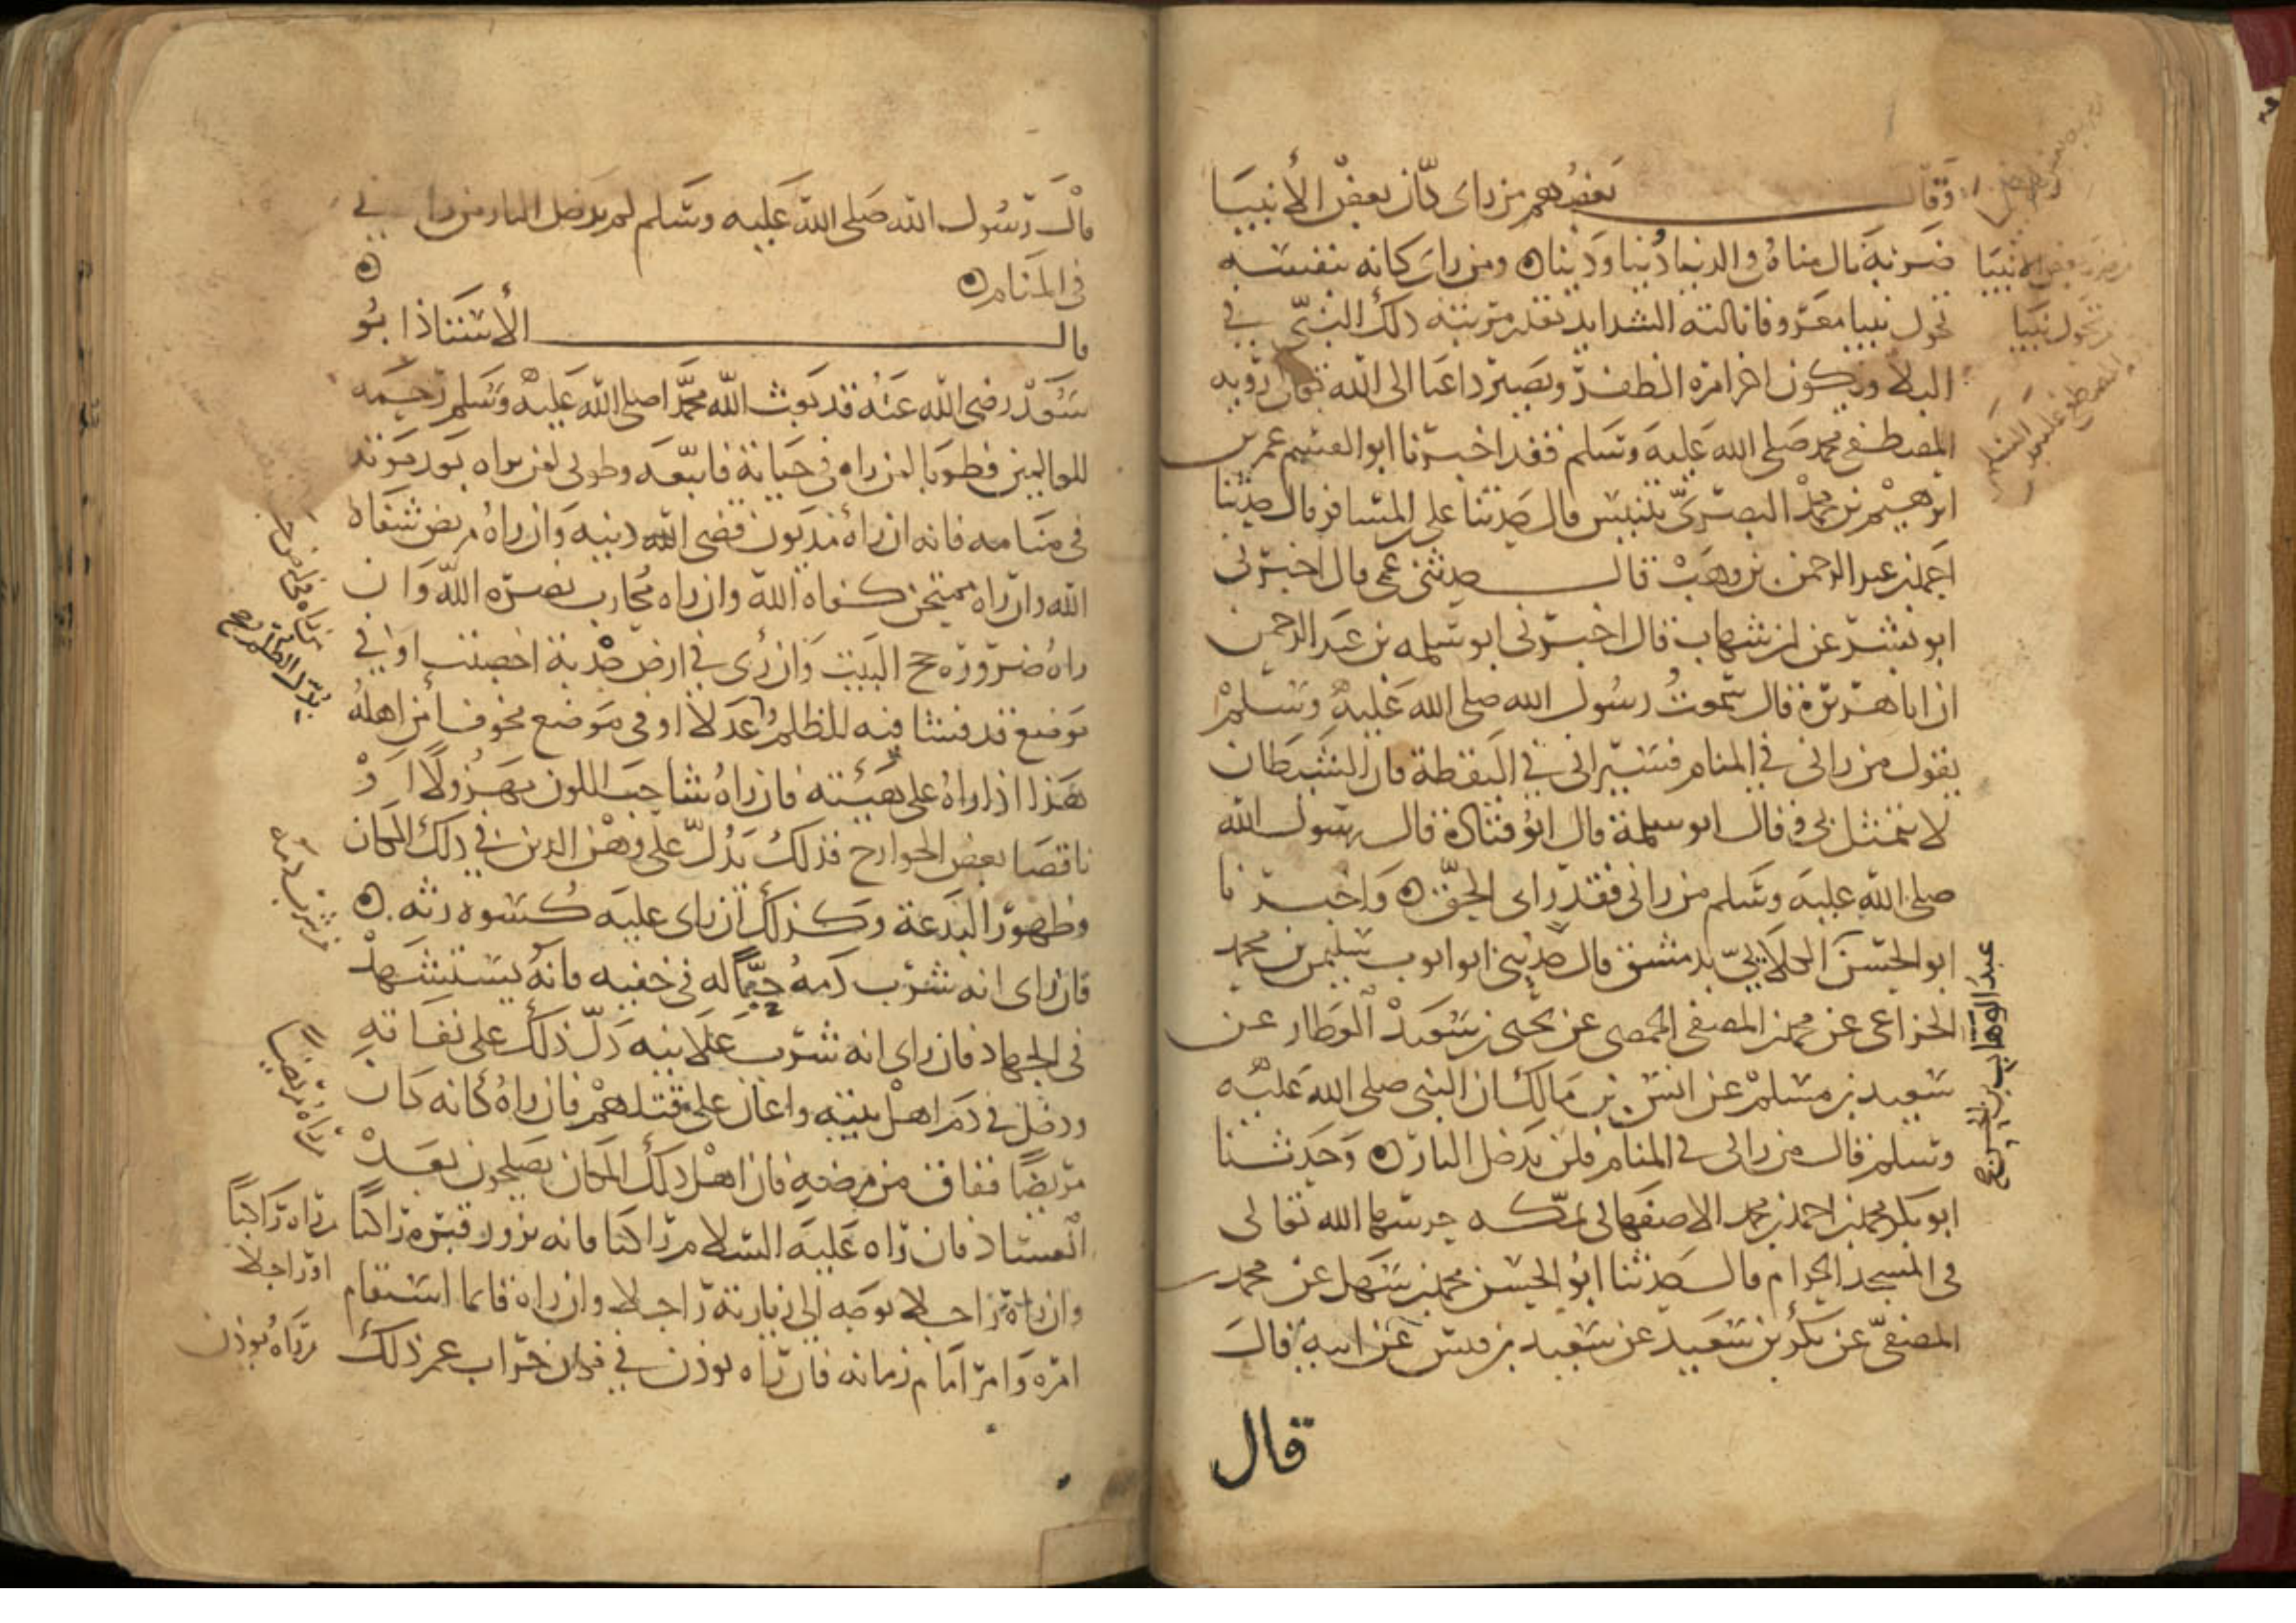 وقال بعضهم من راى كان بعض الأنبيا
ضربه نال مناه في الدنيا دنيا ودينا ومن راى كانه بنفسه
تحول نبيا معروفا نالته الشدايد بقدر مرتبة ذلك النبي في
البلا ويكون اخر امره الظفر ويصير داعيا الى الله تعالى رؤيه
المصطفى محمد صلى الله عليه وسلم فقد اخبرنا ابو القسم عمر بن
ابرهيم بن محمد البصري بتنيس قال حدثنا علي بن المسافر قال حدثنا
احمد بن عبد الرحمن بن وهب قال حدثني عمي قال اخبرني
ابو بشر عن ابن شهاب قال اخبرني ابو سلمه بن عبد الرحمن
ان ابا هريرة قال سمعت رسول الله صلى الله عليه وسلم
يقول من راني في المنام فسيراني في اليقظة فان الشيطان
لا يتمثل بي وقال ابو سلمة قال ابو قتادة قال رسول الله
صلى الله عليه وسلم من راني فقد راى الحق واخبرنا
ابو الحسن الكلابي بدمشق قال حدثني ابو ايوب سليمن بن محمد
الخزاعي عن محمد بن المصفى الحمصي عن يحيى بن سعيد العطار عن
سعيد بن مسلم عن انس بن مالك ان النبي صلى الله عليه
وسلم قال من راني في المنام فلن يدخل النار وحدثنا
ابو بكر محمد بن احمد بن محمد الاصفهاني بمكه حرسها الله تعالى
في المسجد الحرام قال حدثنا ابو الحسن محمد بن سهل عن محمد بن
المصفى عن بكر بن سعيد عن سعيد بن قيس عن ابيه قال
قال
بعض الانبيا
تحول نبيا
المصطفى عليه السلام
عبد الوهاب بن الحسن صح
قال رسول الله صلى الله عليه وسلم لم يدخل النار من راني
في المنام
قال الأستاذ ابو
سعد رضي الله عنه قد بعث الله محمدا صلى الله عليه وسلم رحمه
للعالمين فطوبا لمن راه في حياته فاتبعه وطوبى لمن يراه بعد موته
في منامه فانه ان راه مديون قضى الله دينه وان راه مريض شفاه
الله وان راه ممتحن كفاه الله وان راه محارب نصره الله وان
راه ضرورة حج البيت وان رئى في ارض جدبة اخصبت او في
موضع قد فشا فيه الظلم عدلا او في موضع مخوف أمن اهله
هذا اذا راه على هيئته فان راه شاحب اللون مهزولا او
ناقصا بعض الجوارح فذلك يدل على وهن الدين في ذلك المكان
وظهور البدعة وكذلك ان راى عليه كسوه رثه
فان راى انه شرب دمه حبا له في خفيه فانه يستشهد
في الجهاد فان راى انه شرب علانيه دل ذلك على نفاقه
ودخل في دم اهل بيته واعان على قتلهم فان راه كانه كان
مريضا ففاق من مرضه فان اهل ذلك المكان يصلحون بعد
الفساد فان راه عليه السلام راكبا فانه يزور قبره راكبا
وان راه راجلا توجه الى زيارته راجلا وان راه قايما استقام
امره وامر امام زمانه فان راه يوذن في مكان خراب عمر ذلك
بدل الظلم صح
شرب دمه
راه مريضا
راه راكبا
او راجلا
راه يوذن